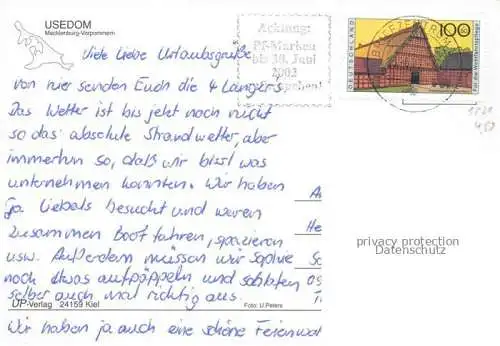 USEDOM
Mecklenburg-Vorpommern
Viele Liebe Urlaubsgrüße
von hier senden Euch die 4 Langers
Das Wetter ist bis jetzt noch nicht
so das absolute Strandwetter, aber
immerhin so, daß wir bissl was
unternehmen konnten. Wir haben
ja Liebels besucht und waren
zusammen Boot fahren, spazieren
usw. Außerdem müssen wir Sophie
noch etwas aufpäppeln und schlafen
selber auch mal richtig aus.
UP-Verlag 24159 Kiel Foto: U.Peters
Wir haben ja auch eine schöne Ferienwo
Achtung:
PF-Marken
bis 30. Juni
2002
DEUTSCHLAND
100
50
Für die Wohlfahrtspflege
BRIEFZENTRUM
privacy protection
Datenschutz